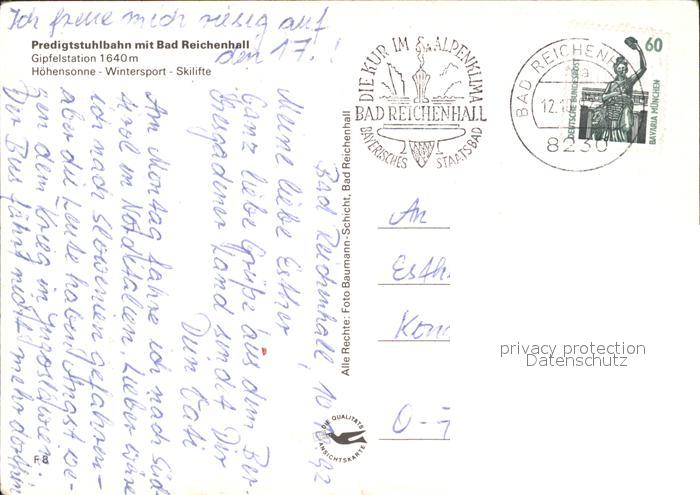 Ich freue mich riesig auf
den 17.!
Predigtstuhlbahn mit Bad Reichenhall
Gipfelstation 1640 m
Höhensonne - Wintersport - Skilifte
Bad Reichenhall, 10.10.92
Meine liebe Esther,
Ganz liebe Grüße aus dem Ber-
chtesgadener Land sendet Dir
Dein Kati
Am Montag fahre ich nach Süd-
tirol in Norditalien. Lieber wäre
ich nach Slowenien gefahren-
aber die Leute haben Angst we-
gen dem Krieg in Jugoslawien.
Der Bus fährt nicht mehr dorthin
F 8
Alle Rechte: Foto Baumann-Schicht, Bad Reichenhall
DIE QUALITÄTS
ANSICHTSKARTE
DIE KUR IM ALPENKLIMA
BAD REICHENHALL
BAYERISCHES STAATSBAD
BAD REICHENH
12.1
8230
60
DEUTSCHE BUNDESPOST
BAVARIA MÜNCHEN
An
Esth
Kon
O-7
privacy protection
Datenschutz